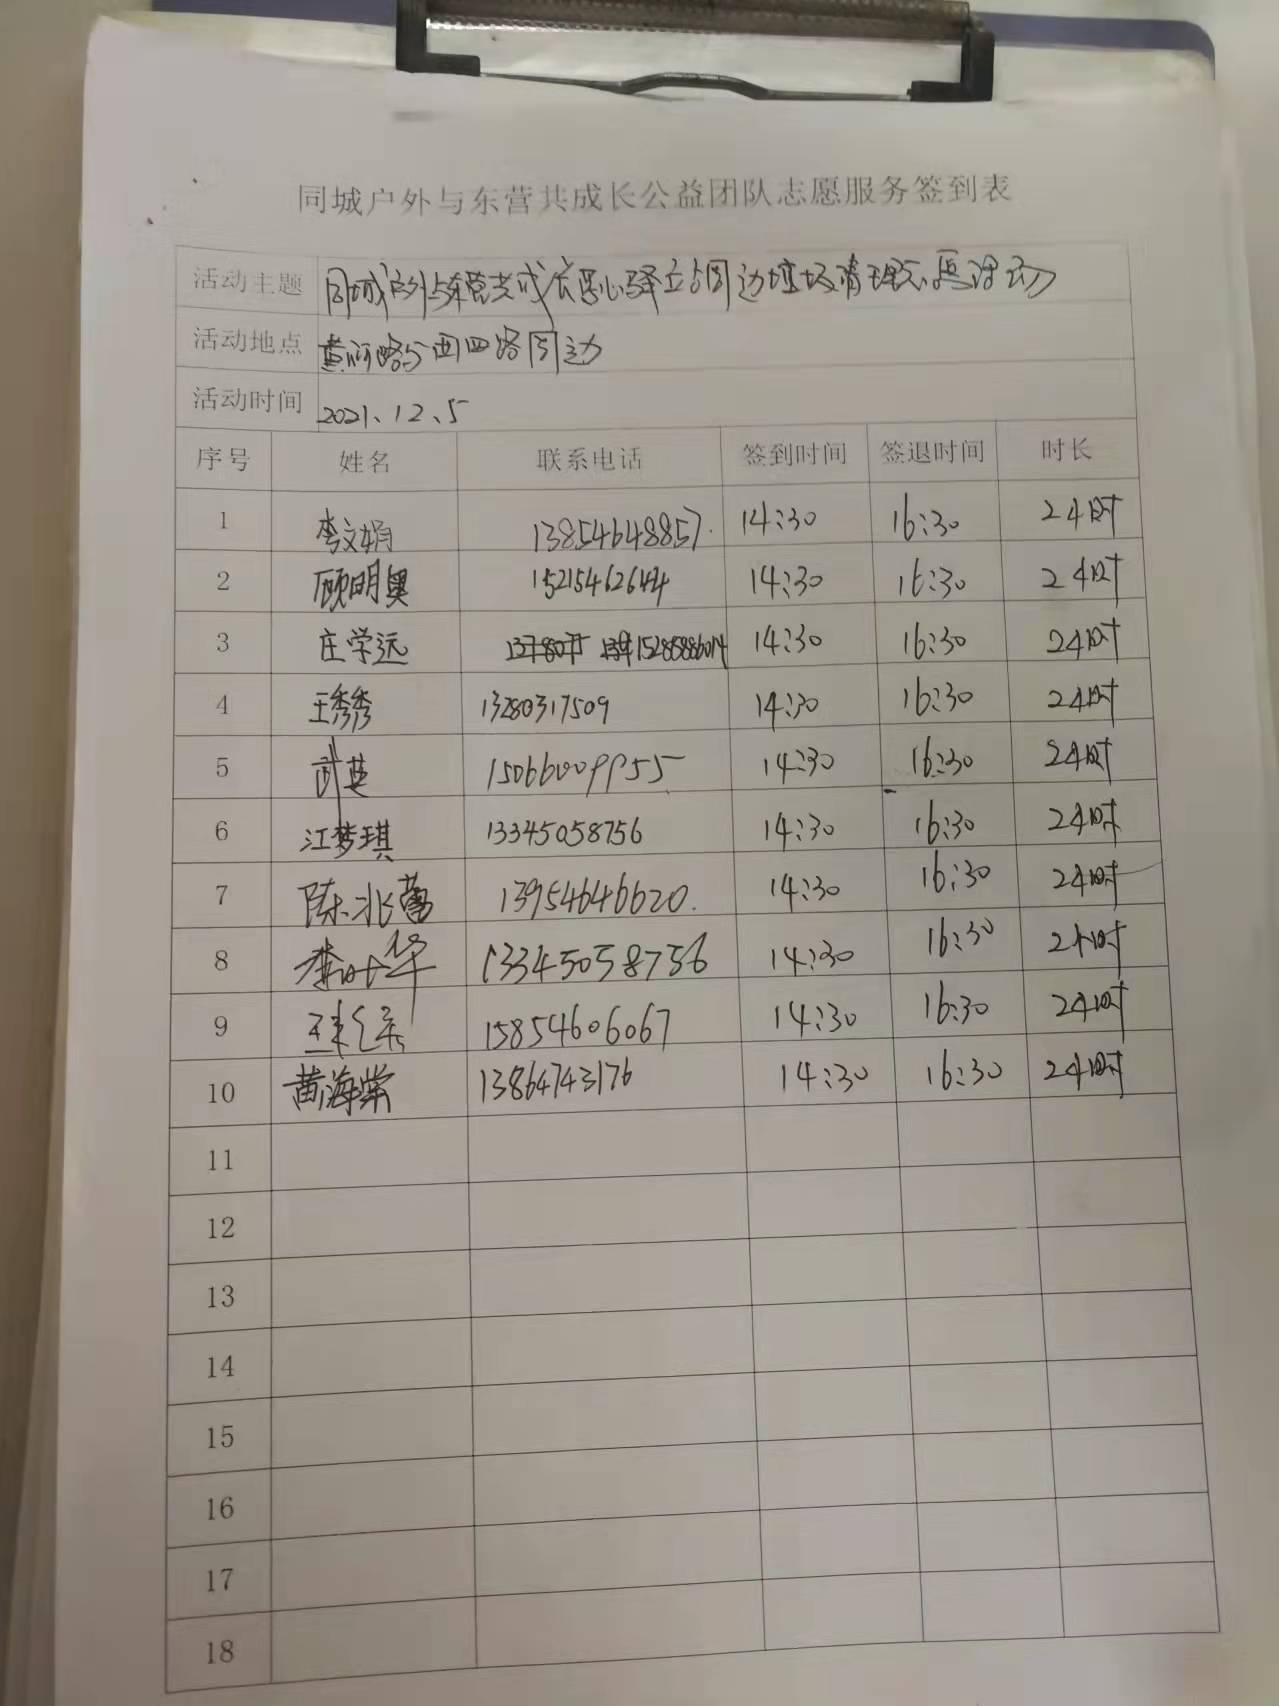 同城户外与东营共成长公益团队志愿服务签到表
活动主题 同城户外与东营共成长爱心驿站周边垃圾清理志愿活动
活动地点 黄河路与西四路周边
活动时间 2021、12、5
序号 姓名 联系电话 签到时间 签退时间 时长
1 李文娟 13854648857. 14:30 16:30 2小时
2 顾明奥 15215462644 14:30 16:30 2小时
3 庄学远 15288886014 14:30 16:30 2小时
4 王秀秀 13280317509 14:30 16:30 2小时
5 武英 15066009955 14:30 16:30 2小时
6 江梦琪 13345058756 14:30 16:30 2小时
7 陈兆蕾 13954646620. 14:30 16:30 2小时
8 李叶华 13345058756 14:30 16:30 2小时
9 15854606067 14:30 16:30 2小时
10 黄海棠 13864743176 14:30 16:30 2小时
11
12
13
14
15
16
17
18